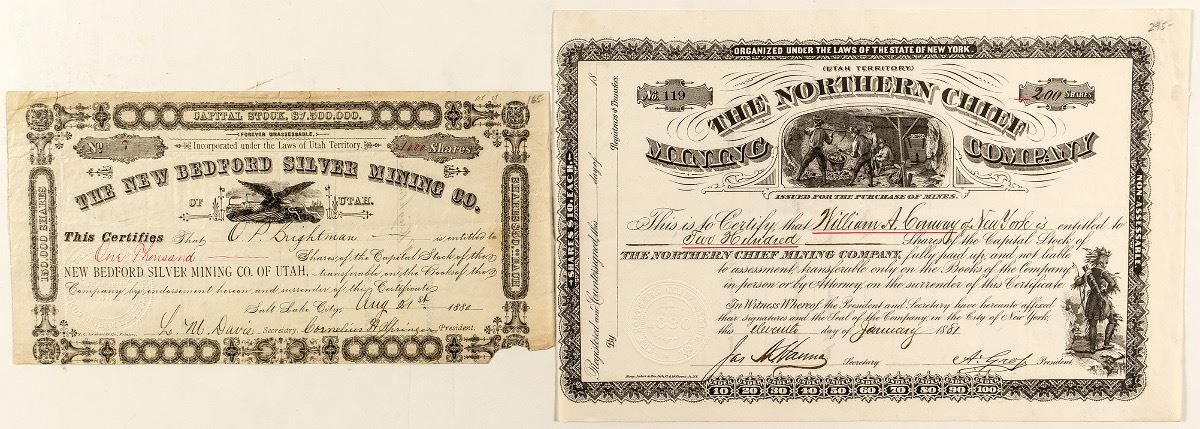 CAPITAL STOCK, $7,500,000.
FOREVER UNASSESSABLE.
No 7
Incorporated under the Laws of Utah Territory.
1000 Shares
THE NEW BEDFORD SILVER MINING CO.
OF UTAH.
150,000 SHARES
SHARES $50.00 EACH
This Certifies That O. P. Brightman is entitled to
One Thousand Shares of the Capital Stock of the
NEW BEDFORD SILVER MINING CO. OF UTAH, transferable on the Books of the
Company by endorsement hereon and surrender of this Certificate
Salt Lake City, Aug 21st 1880
L. M. Davis, Secretary. Cornelius A. Springer President.
235-
ORGANIZED UNDER THE LAWS OF THE STATE OF NEW YORK.
(UTAH TERRITORY.)
No. 119
200 SHARES
THE NORTHERN CHIEF
MINING COMPANY
ISSUED FOR THE PURCHASE OF MINES.
SHARES $10. EACH
NON-ASSESSABLE
Registered and Countersigned this day of 18
By Registrar of Transfers
This is to Certify, that William A. Conway of New York is entitled to
Two Hundred Shares of the Capital Stock of
THE NORTHERN CHIEF MINING COMPANY, fully paid up, and not liable
to assessment, transferable only on the Books of the Company
in person or by Attorney, on the surrender of this Certificate.
In Witness Whereof, the President and Secretary have hereunto affixed
their signatures and the Seal of the Company, in the City of New York,
this eleventh day of January 1881
Secretary President.
10 20 30 40 50 60 70 80 90 100